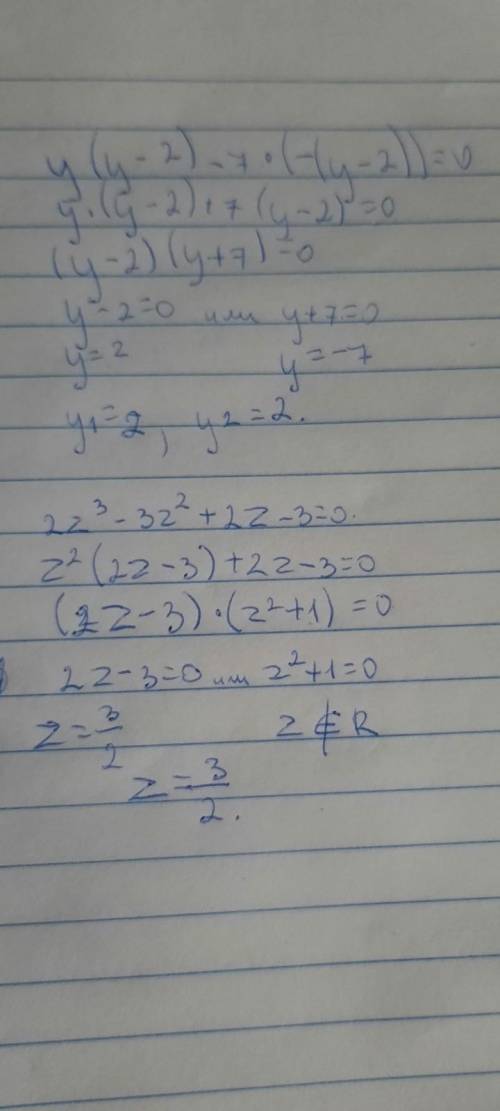 y(y-2)-7·(-(y-2))=0
y·(y-2)+7(y-2)=0
(y-2)(y+7)=0
y-2=0 или y+7=0
y=2 y=-7
y1=2, y2=2.
2z³-3z²+2z-3=0.
z²(2z-3)+2z-3=0
(2z-3)·(z²+1)=0
2z-3=0 или z²+1=0
z=3/2 z∉R
z=3/2.